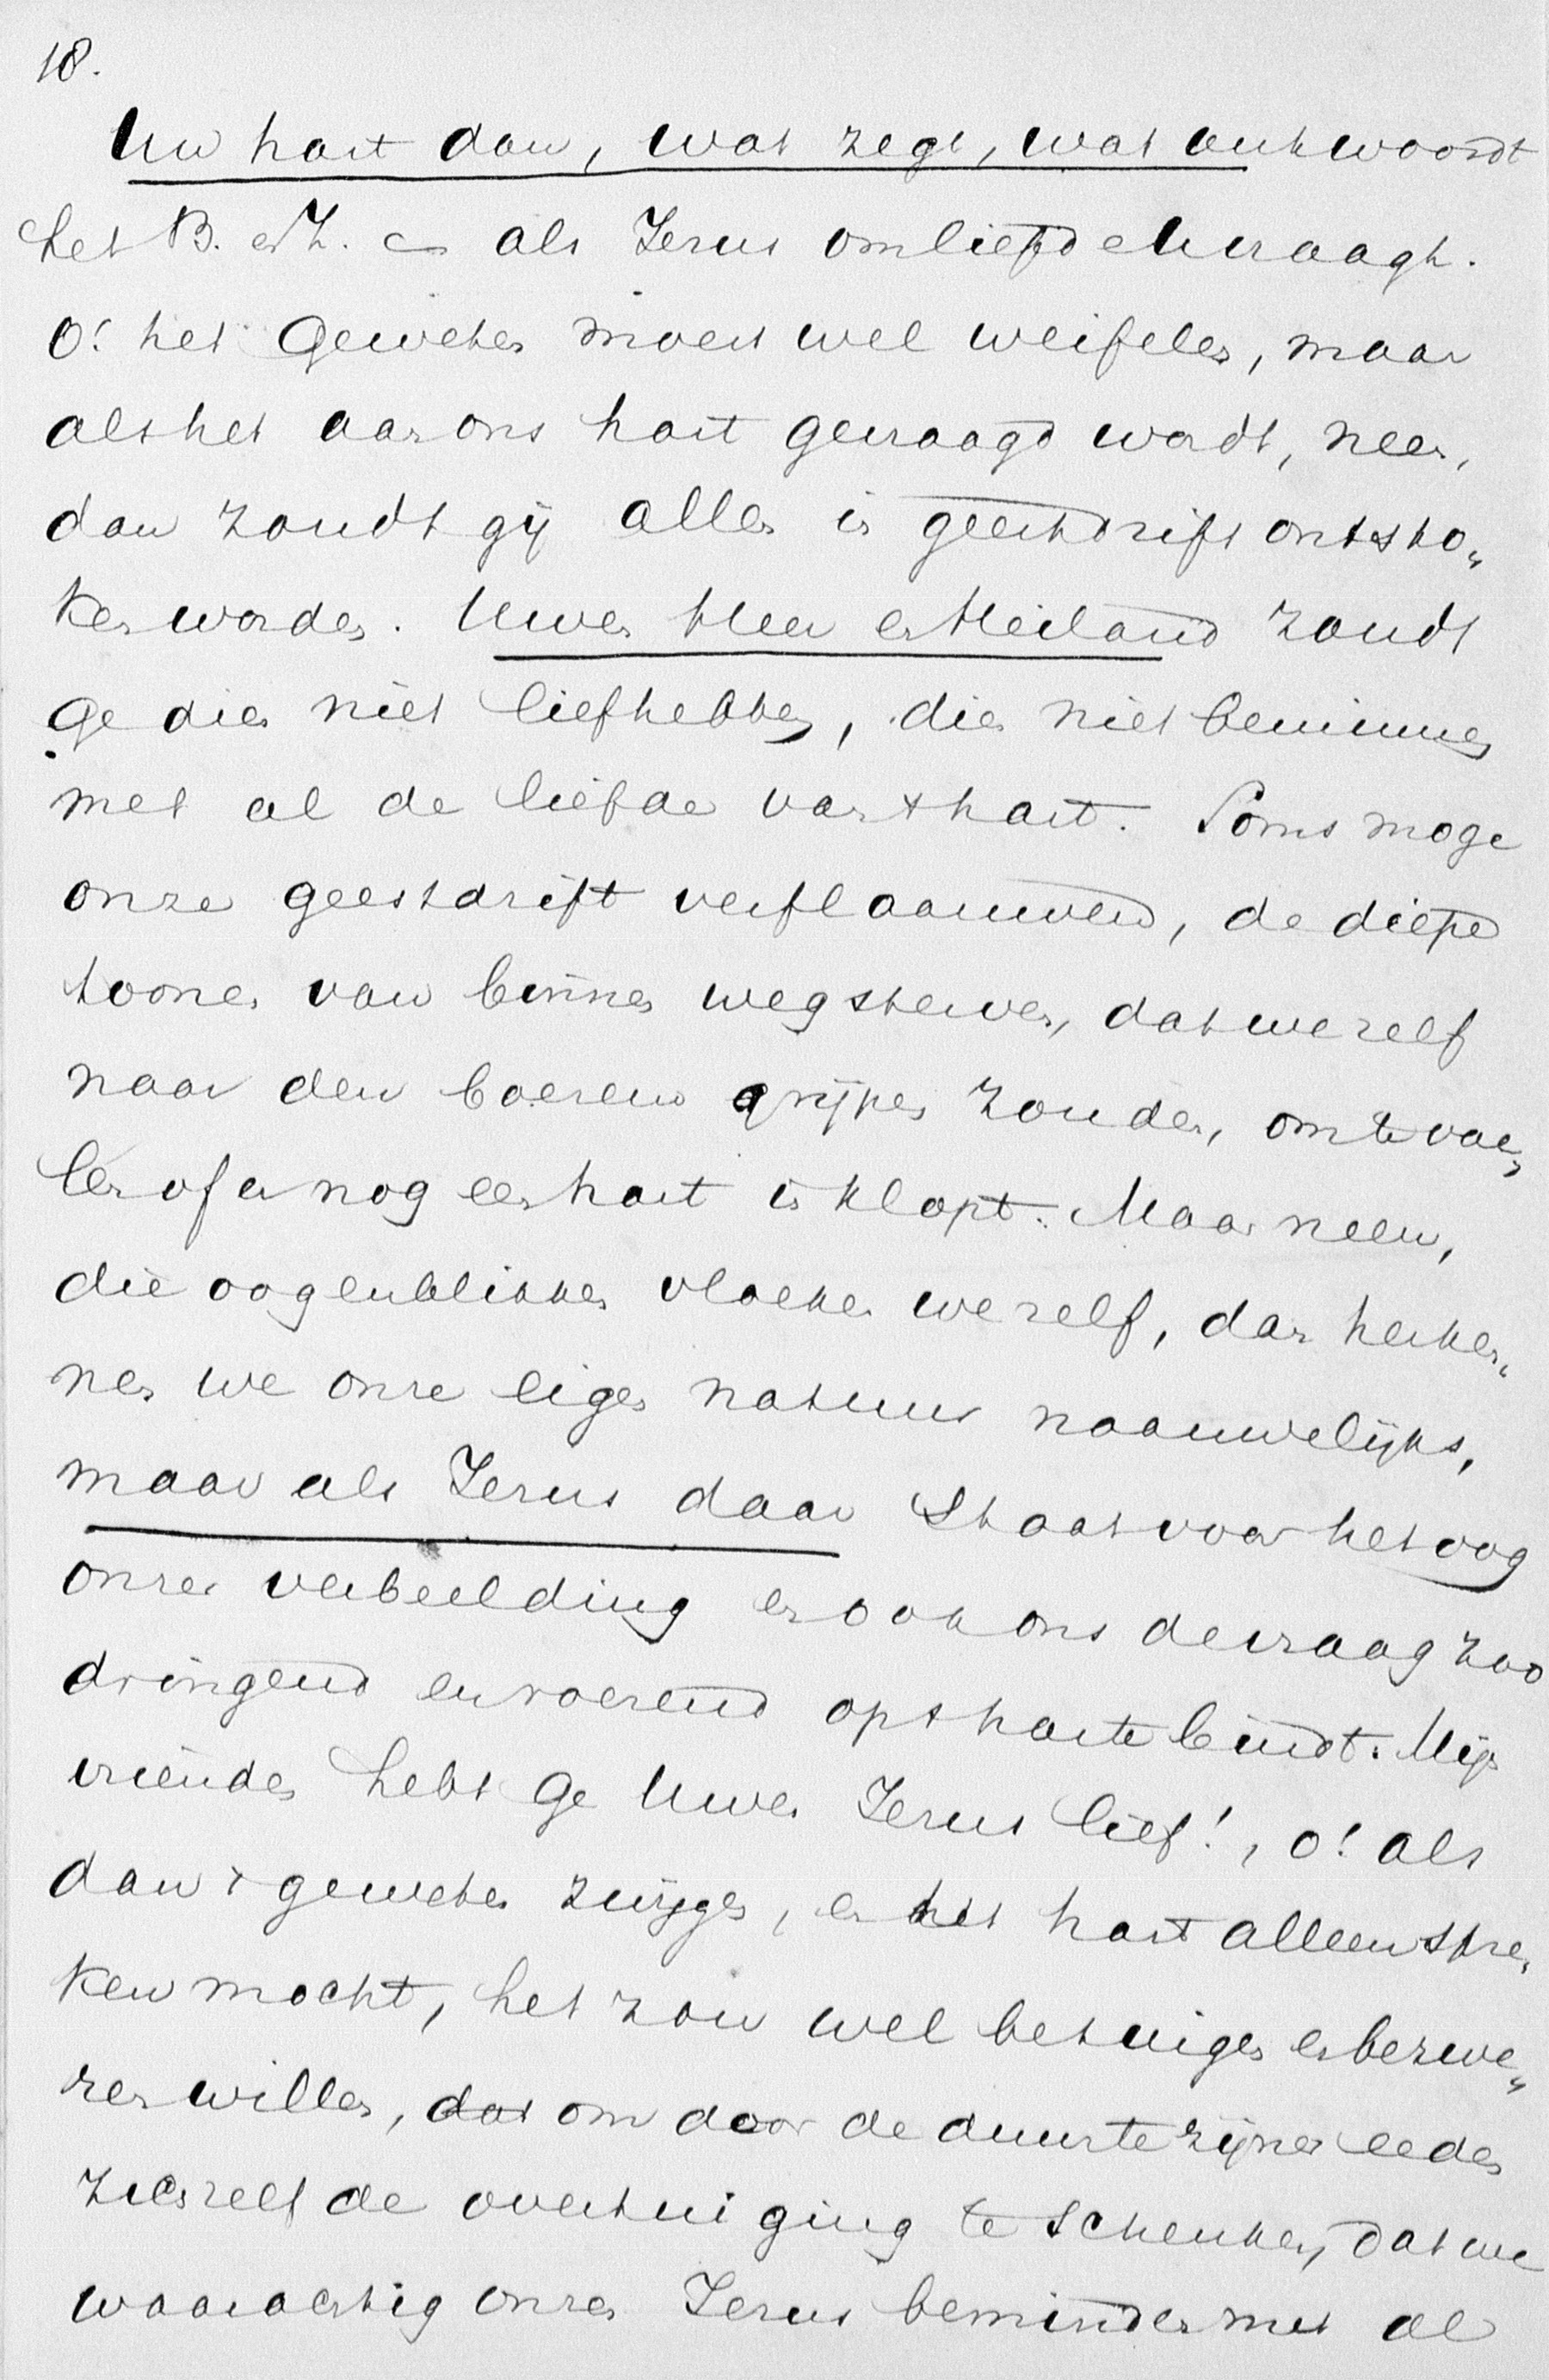 18.
Uw hart dan, wat zegt, wat antwoordt
het B. en Z. als Jezus om liefde vraagt.
O! het geweten moest wel weifelen, maar
als het aan ons hart gevraagd wordt, neen,
dan zoudt gij allen in geestdrift ontsto„
ken worden. Uwen Heer en Heiland zoudt
ge dien niet liefhebben, dien niet beminnen
met al de liefde van 't hart. Soms moge
onze geestdrift verflaauwen, de diepe
toonen van binnen wegsterven, dat we zelf
naar den boezem grijpen zouden, om te voe„
len of er nog een hart in klopt. Maar neen,
die oogenblikken vloeken we zelf, dan herken„
nen we onze eigen natuur naauwelijks,
maar als Jezus daar staat voor het oog
onzer verbeelding en ook ons de vraag zoo
dringend en roerend op 't harte bindt. Mijn
vrienden hebt ge Uwen Jezus lief!, o! als
dan 't geweten zwijgen, en het hart alleen spre„
ken mocht, het zou wel betuigen en bezwe„
ren willen, dat om door de duurte zijner eeden
zich zelf de overtuiging te schenken, dat we
waarachtig onzen Jezus beminden met al